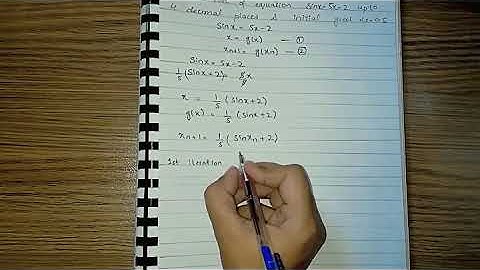 of equation sinx=5x-2 upto
4 decimal places & initial guess x=0.5
sinx = 5x-2
x = g(x) — ①
xn+1 = g(xn) — ②
sinx = 5x-2
1/5 (sinx+2) = x
x = 1/5 (sinx+2)
g(x) = 1/5 (sinx+2)
xn+1 = 1/5 (sinxn+2)
1st iteration